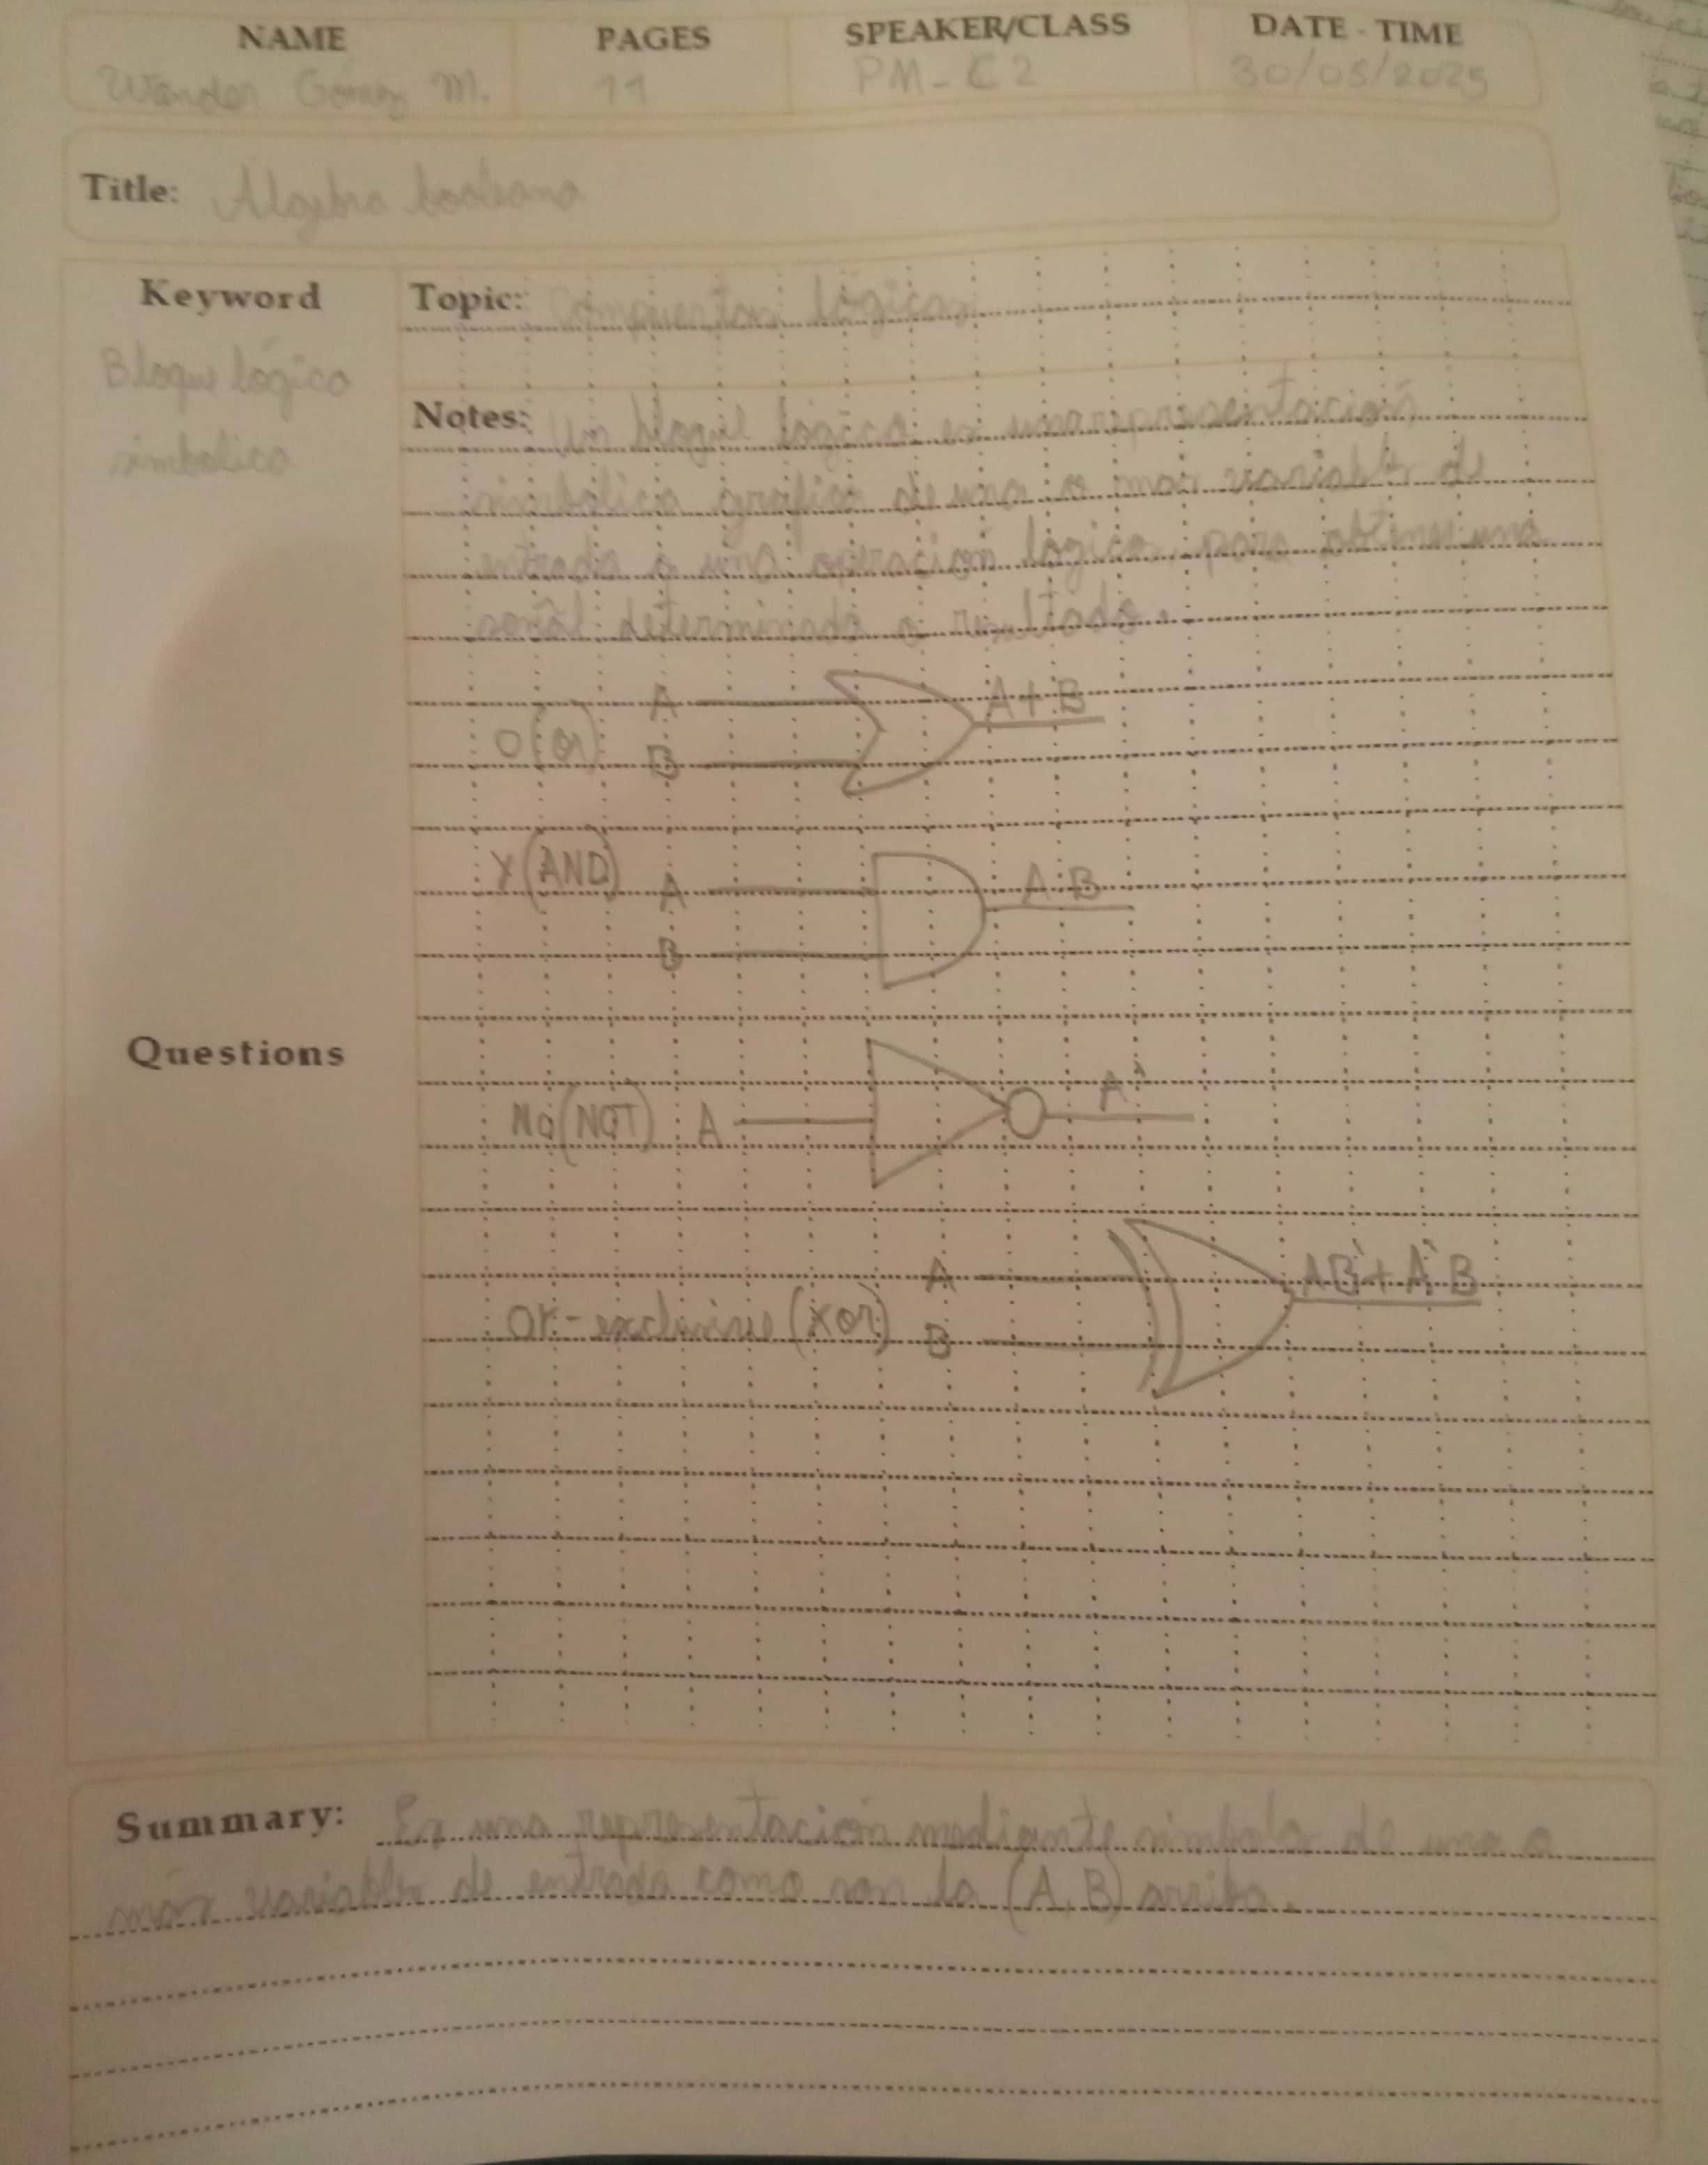 NAME PAGES SPEAKER/CLASS DATE - TIME
Wander Gómez M. 11 PM-C2 30/05/2025
Title: Algebra booleana
Keyword
Bloque lógico
simbolico
Topic: Compuertas lógicas
Notes: Un bloque lógico es una representación
simbólica gráfica de una o mas variable de
entrada a una operación lógica para obtener una
señal determinada o resultado.
O(or) A B A+B
Y(AND) A B A·B
Questions
No(NOT) A A'
Or-exclusive (xor) A B AB'+A'B
Summary: Es una representación mediante simbolo de una o
más variables de entrada como son la (A,B) arriba.